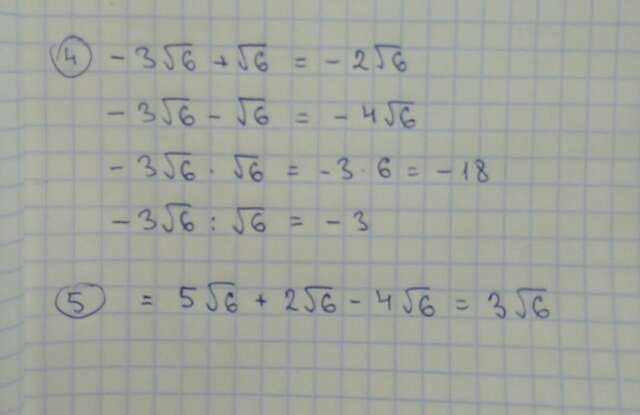 4 - 3√6 + √6 = - 2√6
- 3√6 - √6 = - 4√6
- 3√6 · √6 = -3 · 6 = -18
- 3√6 : √6 = - 3
5 = 5√6 + 2√6 - 4√6 = 3√6